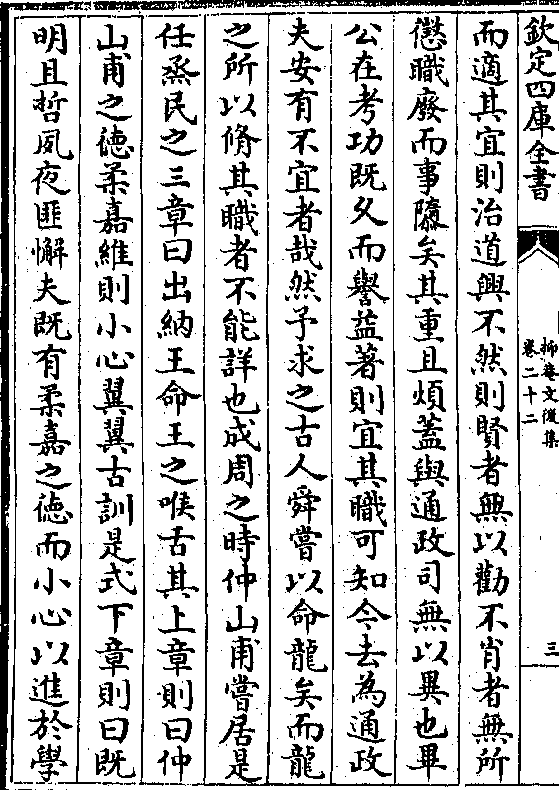 欽定四庫全書
抑菴文後集
卷二十二
三
而適其宜則治道興不然則賢者無以勸不肖者無所
懲職廢而事隳矣其重且煩蓋與通政司無以異也畢
公在考功既久而譽益著則宜其職可知今去為通政
夫安有不宜者哉然予求之古人舜嘗以命龍矣而龍
之所以脩其職者不能詳也成周之時仲山甫嘗居是
任烝民之三章曰出納王命王之喉舌其上章則曰仲
山甫之徳柔嘉維則小心翼翼古訓是式下章則曰既
明且哲夙夜匪懈夫既有柔嘉之徳而小心以進於學